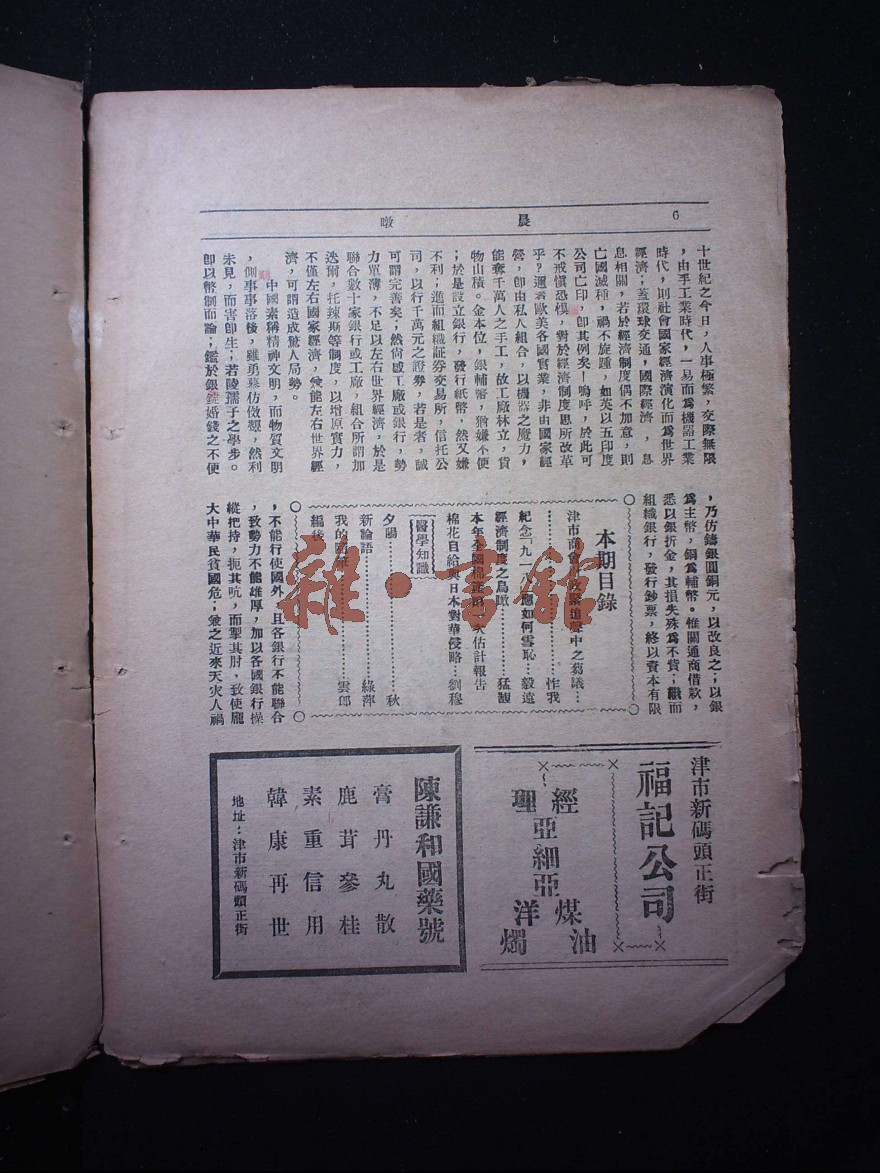 6
晨
暾
十世紀之今日，人事極繁，交際無限
，由手工業時代，一易而爲機器工業
時代，則社會國家經濟演化而爲世界
經濟；蓋環球交通，國際經濟，息
息相關，若於經濟制度偶不加意，則
亡國滅種，禍不旋踵，如英以五印度
公司亡印，卽其例矣！嗚呼，於此可
不戒愼恐惧，對於經濟制度思所改革
乎？邇者歐美各國實業，非由國家經
營，卽由私人組合，以機器之魔力，
能奪千萬人之手工，故工廠林立，貨
物山積。金本位，銀輔幣，猶嫌不便
；於是設立銀行，發行紙幣，然又嫌
不利；進而組織証券交易所，信托公
司，以行千萬元之證劵，若是者，誠
可謂完善矣；然尙感工廠或銀行，勢
力單薄，不足以左右世界經濟，於是
聯合數十家銀行或工廠，組合所謂加
迭爾，托辣斯等制度，以增原實力，
不僅左右國家經濟，兼能左右世界經
濟，可謂造成驚人局勢。
中國素稱精神文明，而物質文明
，則事事落後，雖勇襄仿倣，然利
未見，而害卽生；若陵孺子之學步。
卽以幣制而論；鑑於銀錠婚錢之不便
，乃仿鑄銀圓銅元，以改良之；以銀
爲主幣，銅爲輔幣。惟關通商借款，
悉以銀折金，其損失殊爲不貲；繼而
組織銀行，發行鈔票，終以資本有限
本期目錄
津市商
聲中之芻議…
…………………怍我
紀念「九一八」應如何雪恥…毅遠
經濟制度之鳥瞰………猛馥
本年全國棉產第一次估計報告
棉花自給與日本對華侵略…劉穆
醫學知識
夕陽…………………秋
新論語………………綠萍
我的
…………雲郎
編後
，不能行使國外，且各銀行不能聯合
，致勢力不能雄厚，加以各國銀行操
縱把持，扼其吭，而掣其肘，致使龐
大中華民貧國危；兼之近來天灾人禍
津市新碼頭正街
福記公司
經理
亞細亞
煤油
洋燭
陳謙和國藥號
膏丹丸散
鹿茸參桂
素重信用
韓康再世
地址：津市新碼頭正街
雜·書館